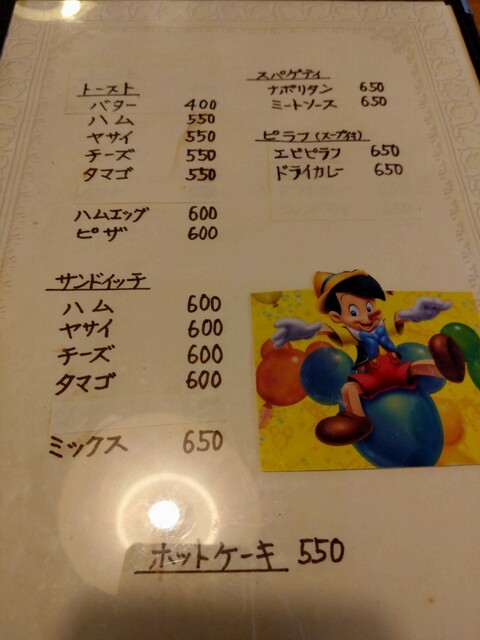 トースト
バター 400
ハム 550
ヤサイ 550
チーズ 550
タマゴ 550
ハムエッグ 600
ピザ 600
サンドイッチ
ハム 600
ヤサイ 600
チーズ 600
タマゴ 600
ミックス 650
スパゲティ
ナポリタン 650
ミートソース 650
ピラフ（スープ付）
エビピラフ 650
ドライカレー 650
ホットケーキ 550